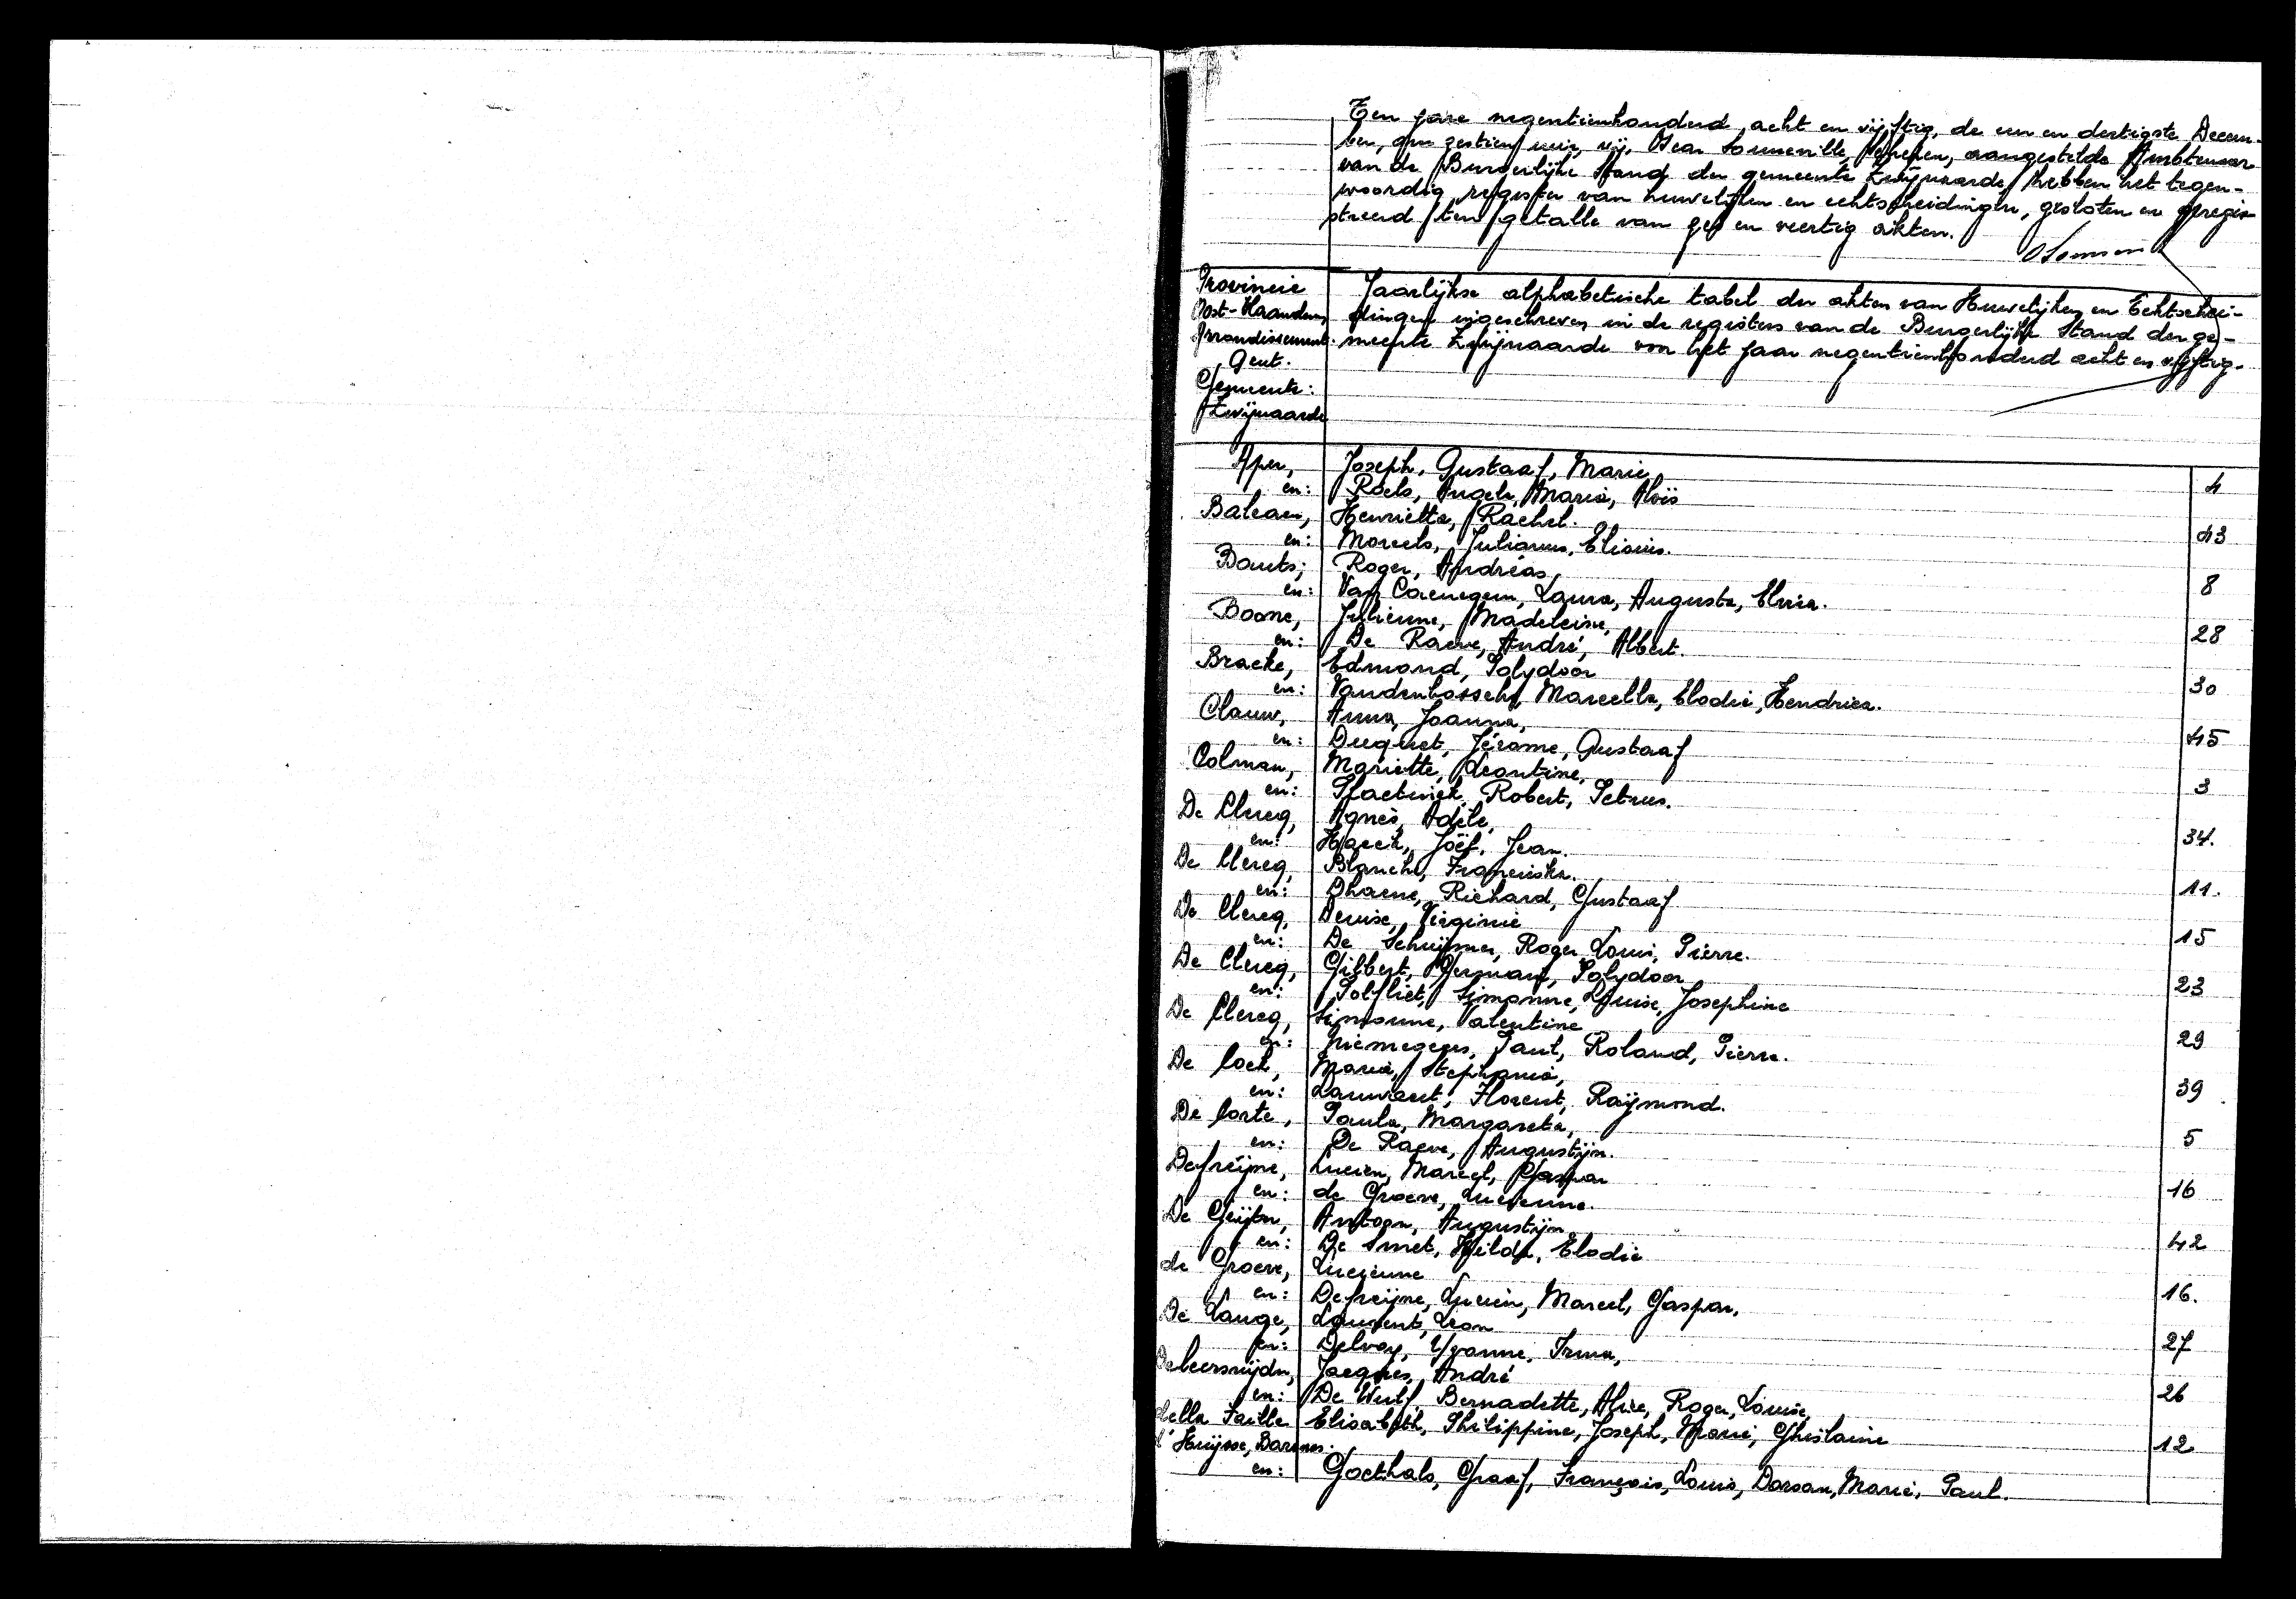 Ten jare negentienhonderd acht en vijftig, de een en dertigste Decem-
ber, om zestien uur, wij, Sonneville, Schepen, aangestelde Ambtenaar
van de Burgerlijke Stand der gemeente Zwijnaarde, hebben het tegen-
woordig register van huwelijken en echtscheidingen, gesloten en geregis
treerd ten getalle van zes en veertig akten.
Provincie
Oost-Vlaanderen
Arrondissement
Gent.
Gemeente:
Zwijnaarde
Jaarlijkse alphabetische tabel der akten van Huwelijken en Echtschei-
dingen ingeschreven in de registers van de Burgerlijke Stand der ge-
meente Zwijnaarde voor het jaar negentienhonderd acht en vijftig.
Aper, Joseph, Gustaaf, Marie, 4
en: Roels, Angela, Maria, Aloïs
Balcaen, Henrietta, Rachel. 43
en: Moreels, Julianus,
Bouts, Roger, Andréas, 8
en: Van Caenegem, Laura, Augusta, Elvira.
Boone, Julienne, Madeleine, 28
en: De Raeve, André, Albert.
Bracke, Edmond, Polydoor 30
en: Vandenbossche, Marcella, Elodie, Hendrica.
Clauw, Anna, Joanna, 45
en: Duquet, Jérome, Gustaaf
Colman, Mariette, Leontine, 3
en: Plaetinck, Robert, Petrus.
De Clercq, Agnès, Adèle, 34.
en: Haeck, Joëf, Jean.
De Clercq, Blanche, Franciska. 11.
en: Dhaene, Richard, Gustaaf
De Clercq, Denise, Virginie 15
en: De Schuijmer, Roger, Louis, Pierre.
De Clercq, Gilbert, Germain, Polydoor 23
en: Polfliet, Simonne, Louise, Josephine
De Clercq, Simonne, Valentine 29
en: Niemegeers, Paul, Roland, Pierre.
De Cock, Maria, Stephania, 39
en: Lauwaert, Florent, Raijmond.
De Corte, Paula, Margareta, 5
en: De Raeve, Augustijn.
Defreijne, Lucien, Marcel, Gaspar 16
en: de Groeve, Lucienne.
De Geijter, Antoon, Augustijn 42
en: De Smet, Hilda, Elodie
de Groeve, Lucienne 16.
en: Defreijne, Lucien, Marcel, Gaspar,
De Lange, Laurent, Leon 27
en: Delvoy, Yvonne, Irma,
Deleersnijder, Jacques, André 26
en: De Wulf, Bernadette, Alice, Roger, Louise,
della Faille Elisabeth, Philippine, Joseph, Marie, Ghislaine 12
d'Huijsse, Barones.
en: Goethals, Graaf, François, Louis, Marie, Paul.